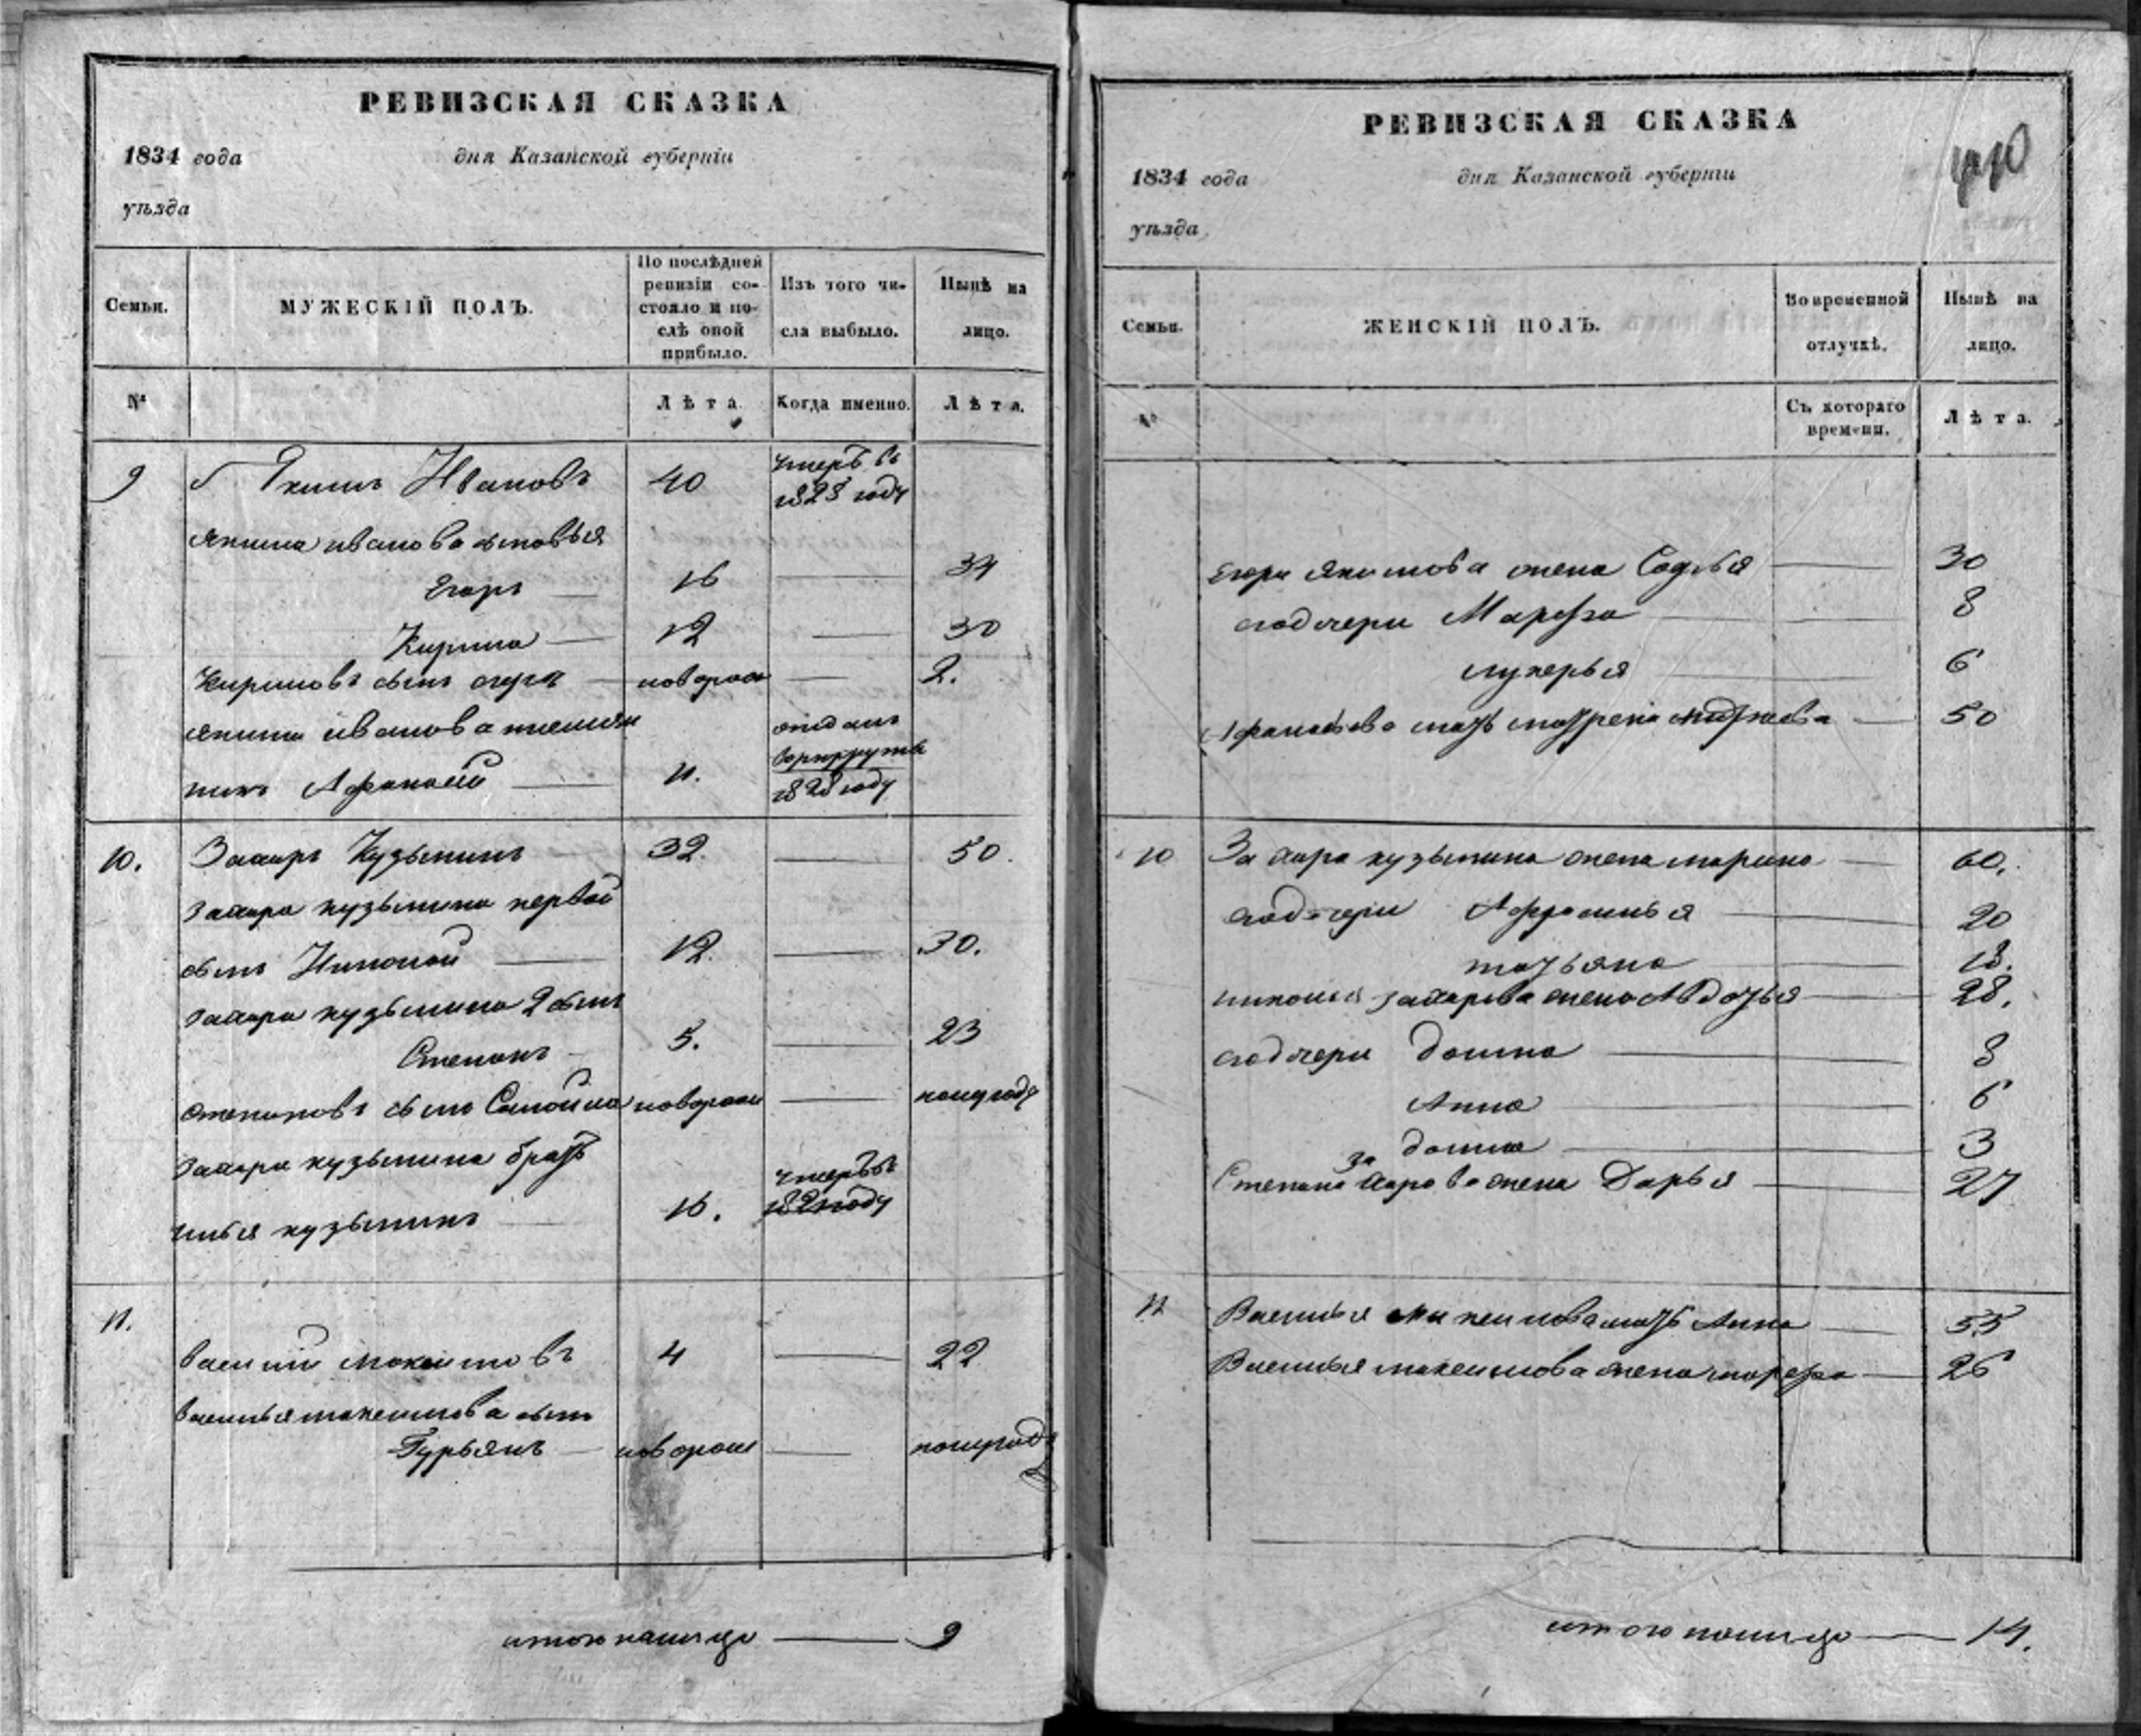 РЕВИЗСКАЯ СКАЗКА
1834 года дня Казанской губерніи
уѣзда
Семьи. МУЖЕСКІЙ ПОЛЪ. По послѣдней ревизіи состояло и послѣ оной прибыло. Изъ того числа выбыло. Нынѣ на лицо.
№ Лѣта. Когда именно. Лѣта.
9 Якимъ Ивановъ 40 умеръ въ 1828 году
Якима иванова сыновья
Егоръ 16 34
Кирила 12 30
Кириловъ сынъ 2.
Якима иванова племян
никъ Афанасий 11. отданъ врекруты 1828 году
10. Захаръ Кузьминъ 32. 50.
Захара кузьмина первой
сынъ Николай 12. 30.
Захара кузьмина 2 сынъ
Степанъ 5. 23
Степановъ сынъ Самойла новорож полугода
Захара кузьмина братъ
илья кузьминъ 16. умеръ въ году
11.
Василий максимовъ 4 22
Василья максимова сынъ
Гурьянъ новорож полугода
итого налицо 9
РЕВИЗСКАЯ СКАЗКА
1834 года дня Казанской губерніи
уѣзда
Семьи. ЖЕНСКІЙ ПОЛЪ. Во временной отлучкѣ. Нынѣ на лицо.
№ Съ котораго времени. Лѣта.
Егора якимова жена Софья 30
аодчери Марфа 8
лукерья 6
Афанасьева мать матрена 50
10 Захара кузьмина жена марина 60.
аодчери Афросинья 20
татьяна 18.
николая захарова жена Авдотья 28.
аодчери домна 8
Анна 6
домна 3
Степана захарова жена Дарья 27
11 Василья максимова мать Анна 55
Василья максимова жена марфа 26
итого налицо 14.